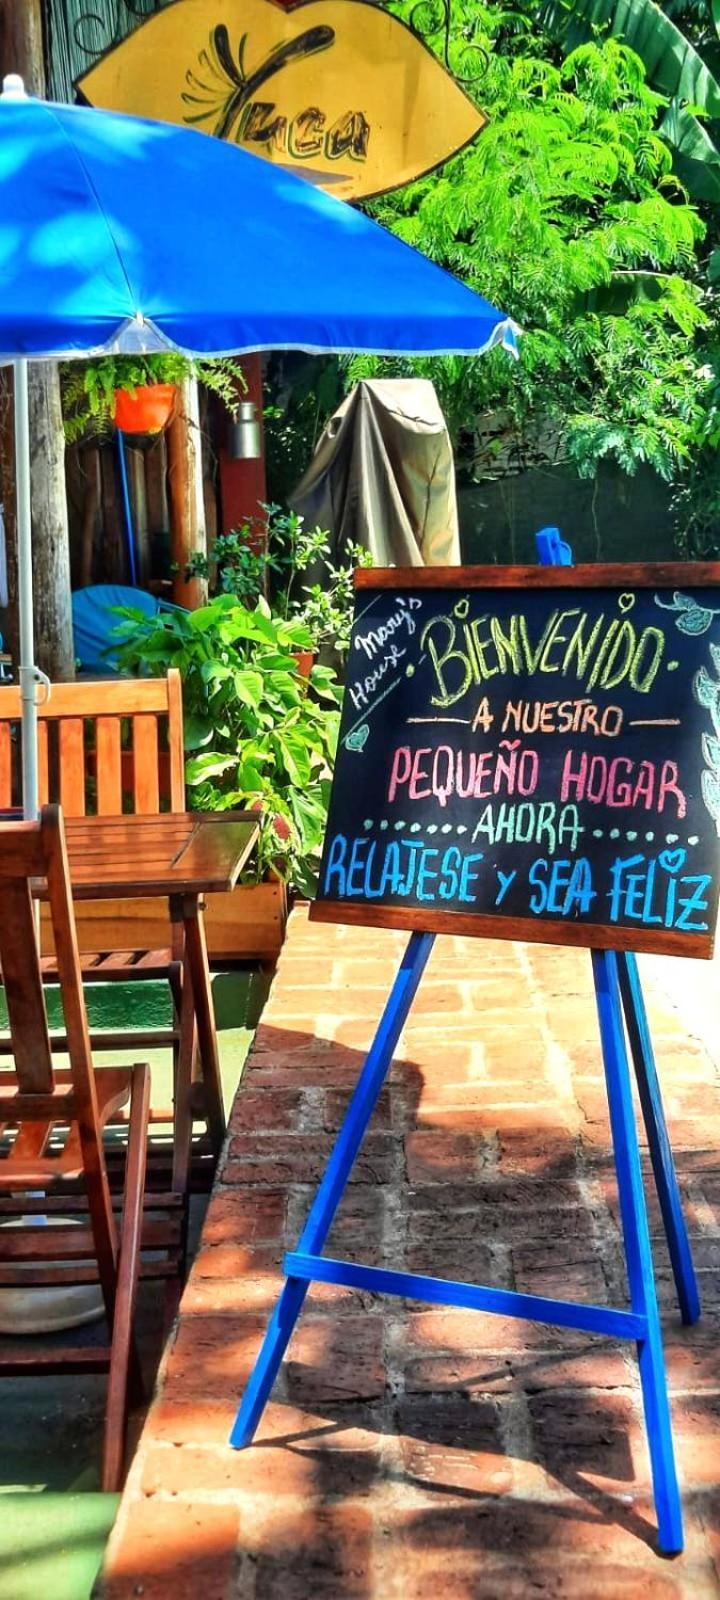 Yuca
Mary's
House
BIENVENIDO
A NUESTRO
PEQUEÑO HOGAR
AHORA
RELAJESE Y SEA FELIZ